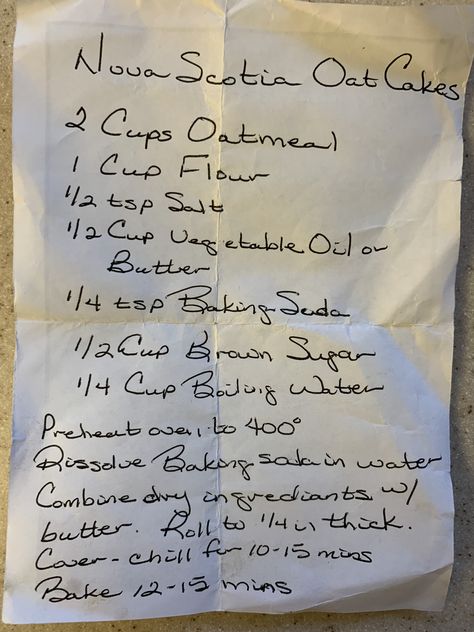 Nova Scotia Oat Cakes
2 Cups Oatmeal
1 Cup Flour
1/2 tsp Salt
1/2 Cup Vegetable Oil or
Butter
1/4 tsp Baking Soda
1/2 Cup Brown Sugar
1/4 Cup Boiling Water
Preheat oven to 400°
Dissolve Baking soda in water
Combine dry ingrediants w/
butter. Roll to 1/4 in thick.
Cover - chill for 10-15 mins
Bake 12-15 mins